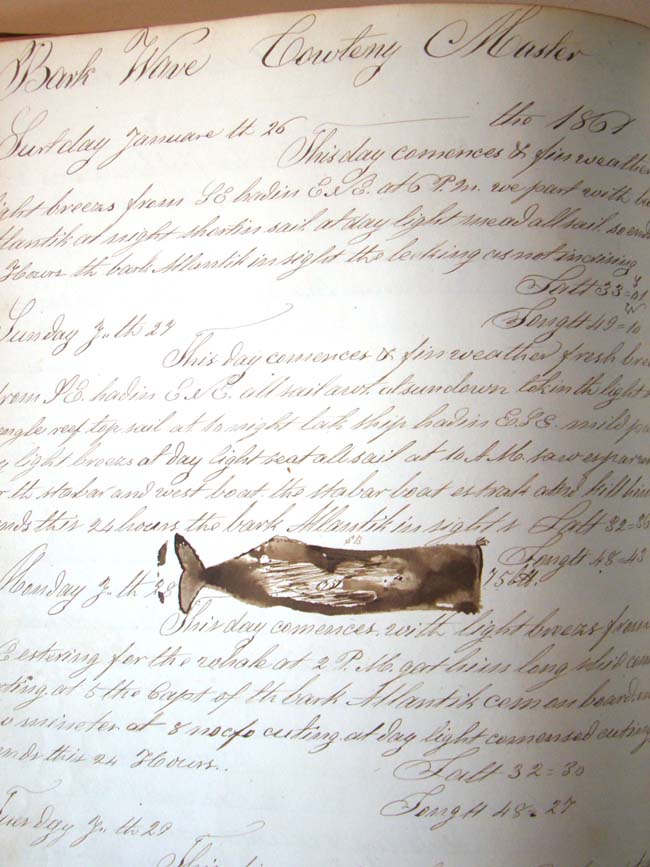 Bark Wave Cowteny Master
Surtday Januare th 26 the 1861
This day comences & fin weather
light breezs from SE hadin E N E. at 6 P.M. we part with
tlantik at night shortin sail at day light mead all sail so end
Hours th bark Atlantik in sight the leeking as not incrisinig
Latt 33=01
Longtt 49=10
Sunday J. th 27
This day comences & fin weather fresh bree
from SE. hadin E N E. all sail awt. at sundown tok in the light
engle reef top sail at 10 night tak ship hadin E S E. mild
light breezs at day light seat all sail at 10 A.M. saw esparm
the stabar and west boat. the stabar boat estrak and kill him
ends this 24 hours the bark Atlantik in sight Latt 32=36
SB
Longtt 48=43
Monday J. th 28 75 bh.
This day comences with light breezs from
E estering for the whale at 2 P.M. gort him long shid com
cting at 5 the Capt of th bark Atlantik com on board
mineter. at 8 nocfo cuting at day light comensed cuting
ends this 24 Hours..
Latt 32=30
Longtt 48=27
Tuesday J. th 29
This